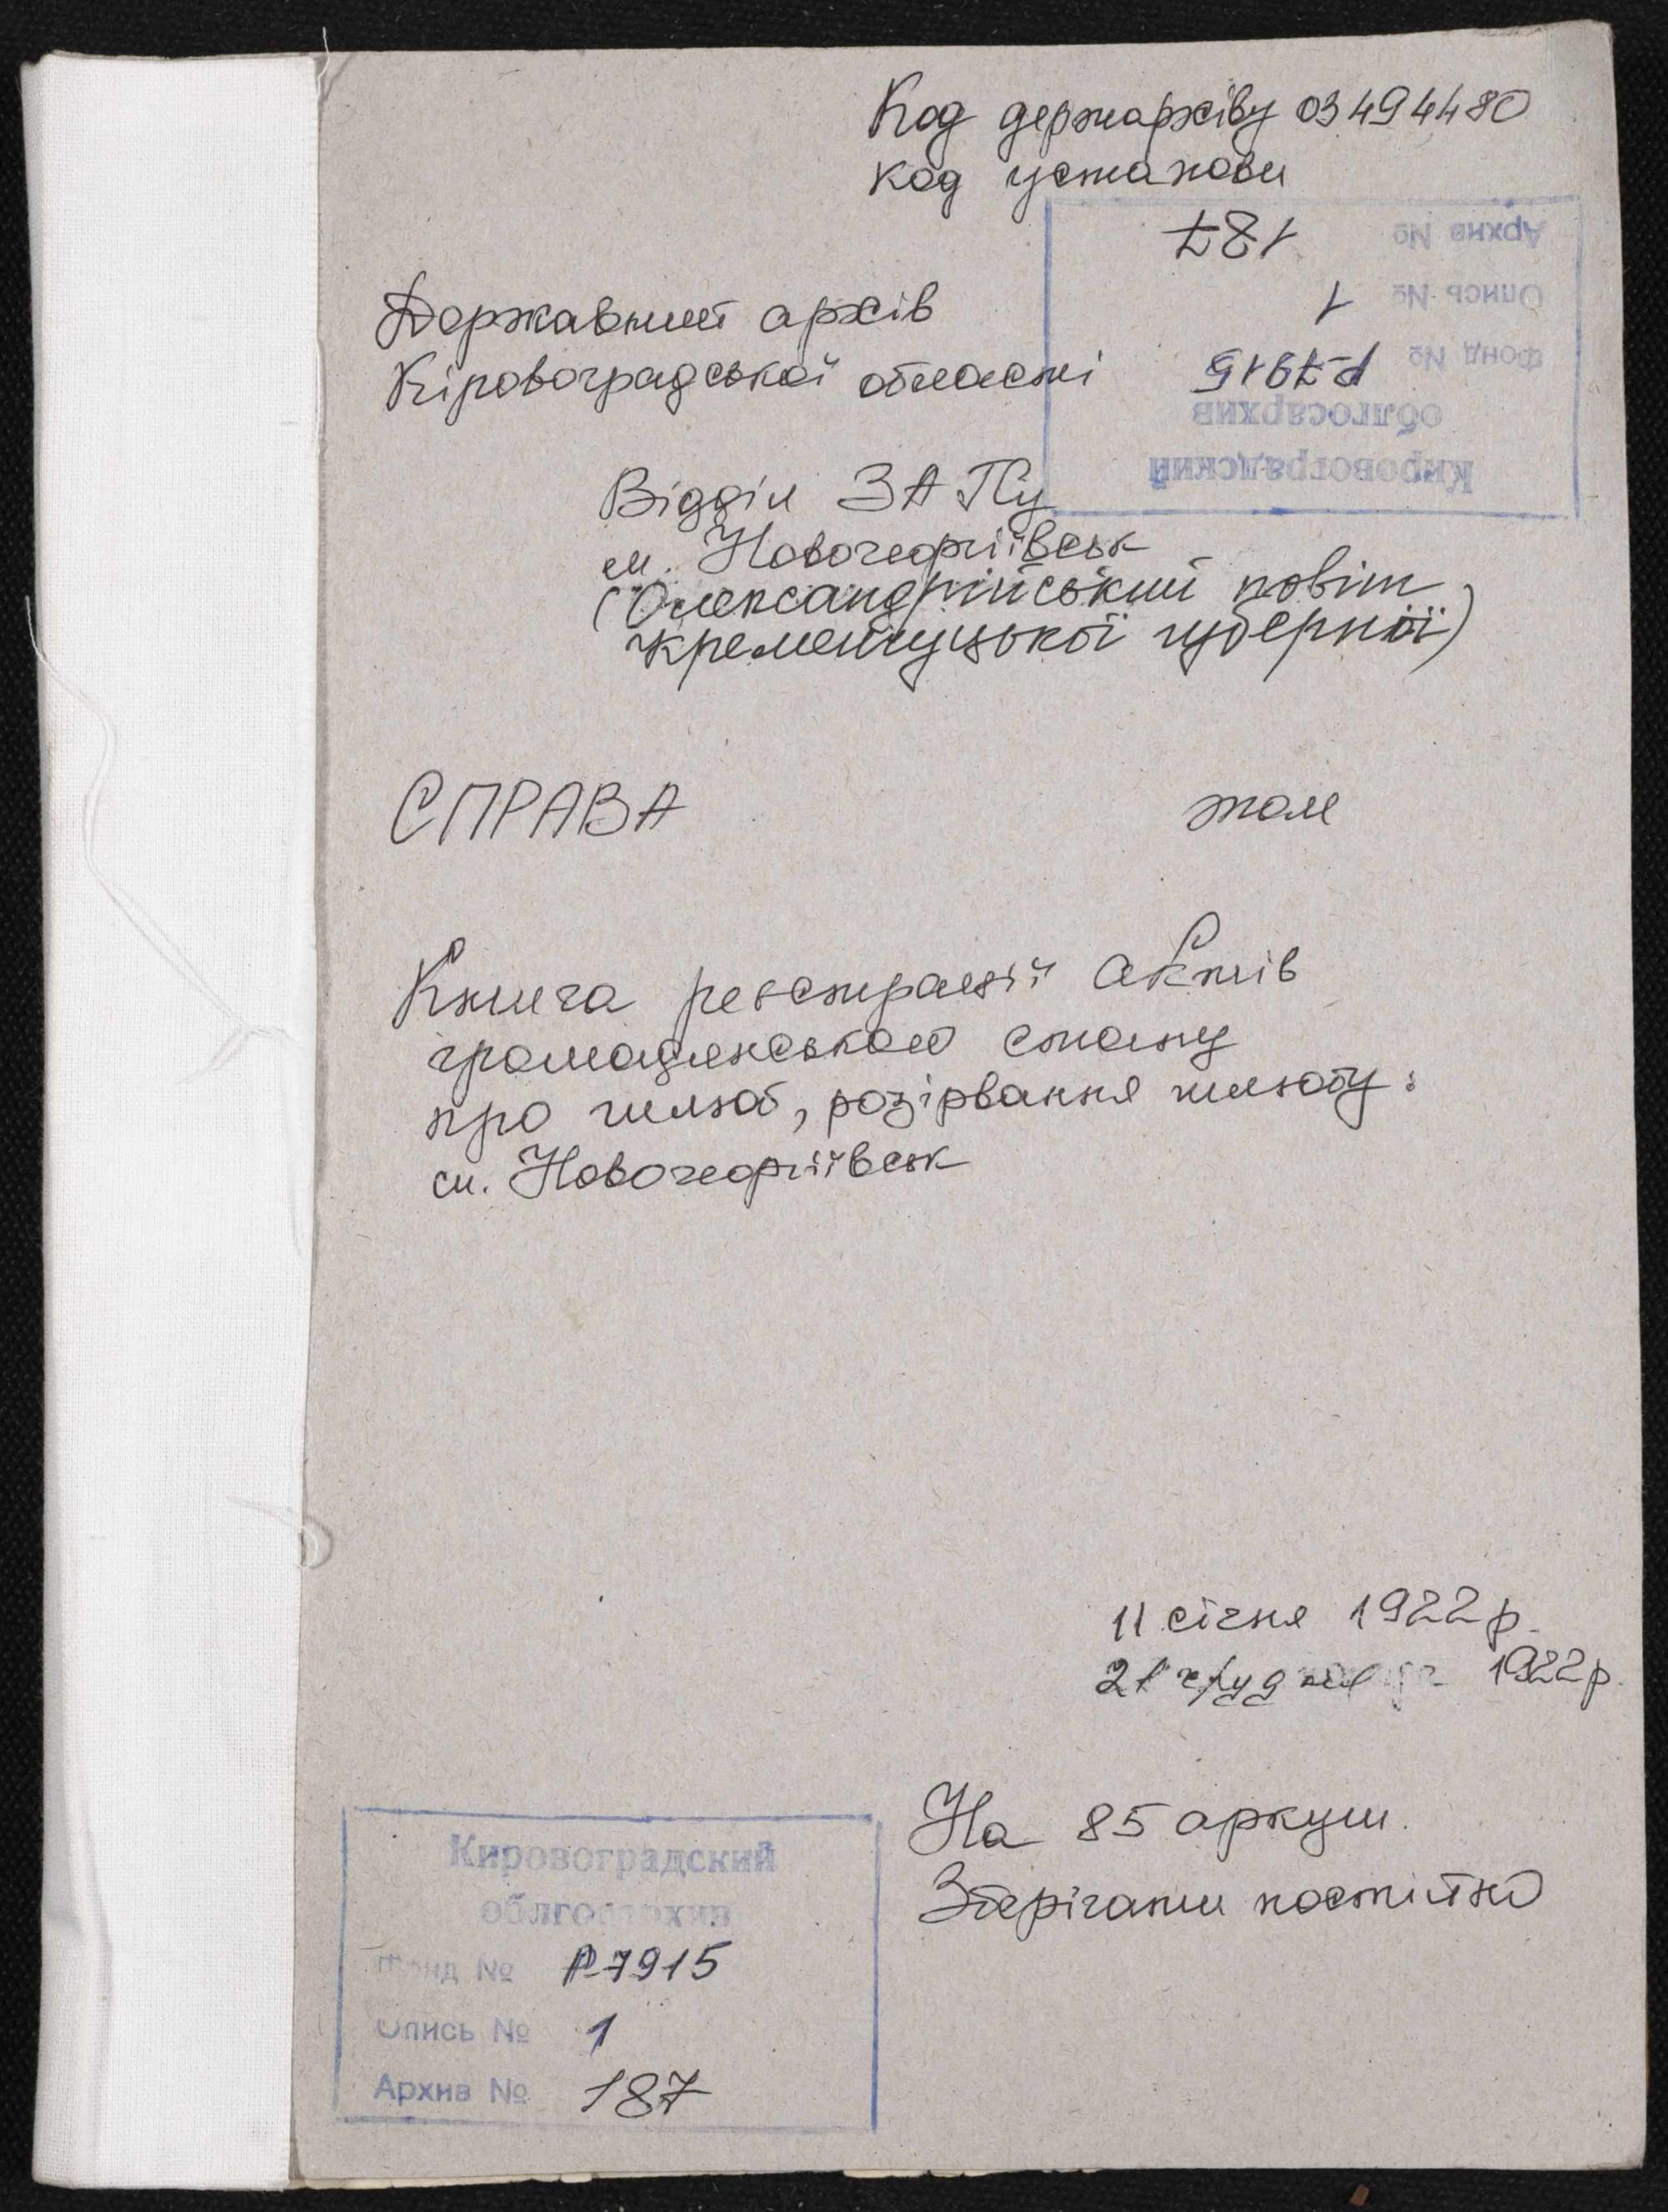 Код держархіву 03494480
код установи
Архив № 187
Опись № 1
Фонд № Р-7915
облгосархив
Кировоградский
Державний архів
Кіровоградської області
Відділ ЗАГСу
м. Новогеоргіївськ
(Олександрійський повіт
Кременчуцької губернії)
СПРАВА том
Книга реєстрації актів
громадянського стану
про шлюб, розірвання шлюбу:
см. Новогеоргіївськ
11 січня 1922 р.
21 грудня 1922 р.
На 85 аркуш.
Зберігати постійно
Кировоградский
облгосархив
Фонд № Р-7915
Опись № 1
Архив № 187